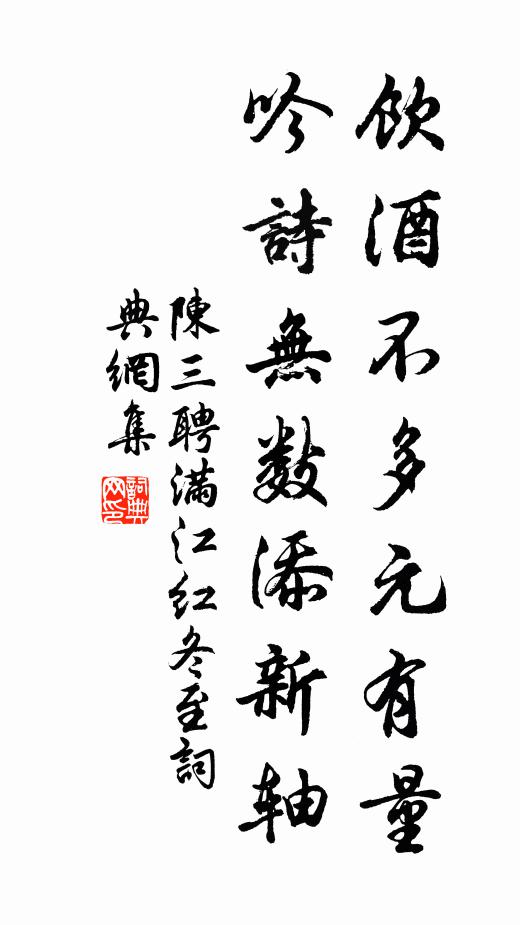 飲酒不多元有量
吟詩無数添新轴
陳三聘满江红冬至詞
典網集
詞典网印